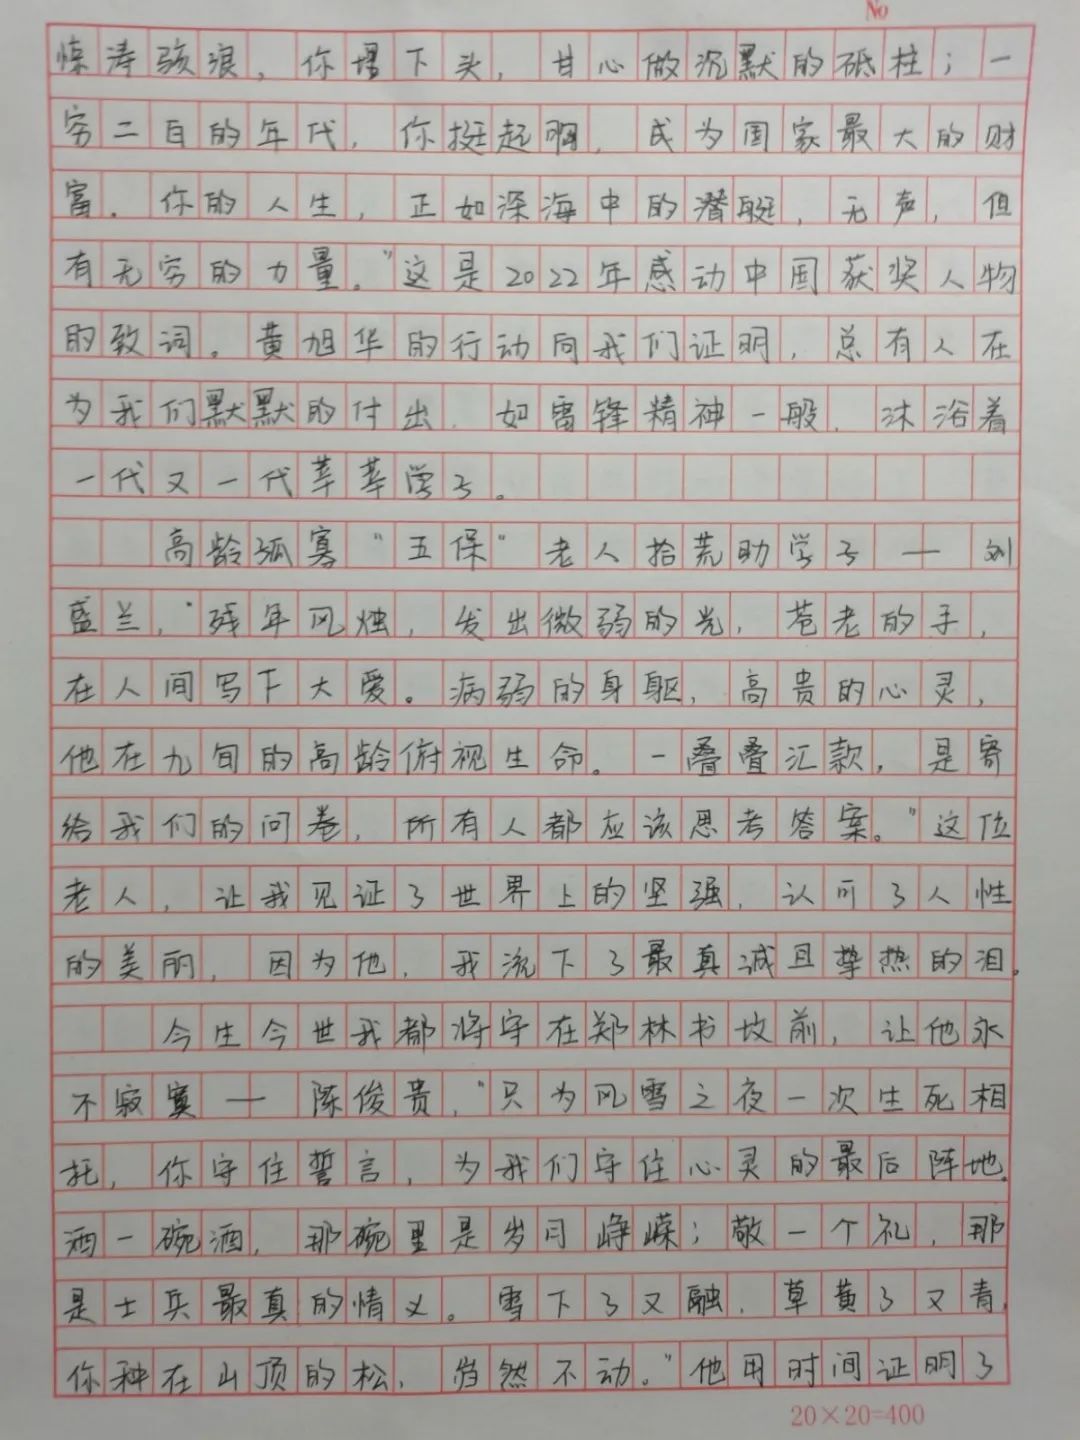 No
惊涛骇浪，你埋下头，甘心做沉默的砥柱；一
穷二白的年代，你挺起胸，成为国家最大的财
富。你的人生，正如深海中的潜艇，无声，但
有无穷的力量。”这是2022年感动中国获奖人物
的致词。黄旭华的行动向我们证明，总有人在
为我们默默的付出，如雷锋精神一般，沐浴着
一代又一代莘莘学子。
高龄孤寡“五保”老人拾荒助学子—刘
盛兰，“残年风烛，发出微弱的光，苍老的手，
在人间写下大爱。病弱的身躯，高贵的心灵，
他在九旬的高龄俯视生命。一叠叠汇款，是寄
给我们的问卷，所有人都应该思考答案。”这位
老人，让我见证了世界上的坚强，认可了人性
的美丽，因为他，我流下了最真诚且挚热的泪。
今生今世我都将守在郑林书坟前，让他永
不寂寞—陈俊贵，“只为风雪之夜一次生死相
托，你守住誓言，为我们守住心灵的最后阵地。
洒一碗酒，那碗里是岁月峥嵘；敬一个礼，那
是士兵最真的情义。雪下了又融，草黄了又青，
你种在山顶的松，岿然不动。”他用时间证明了
20×20=400